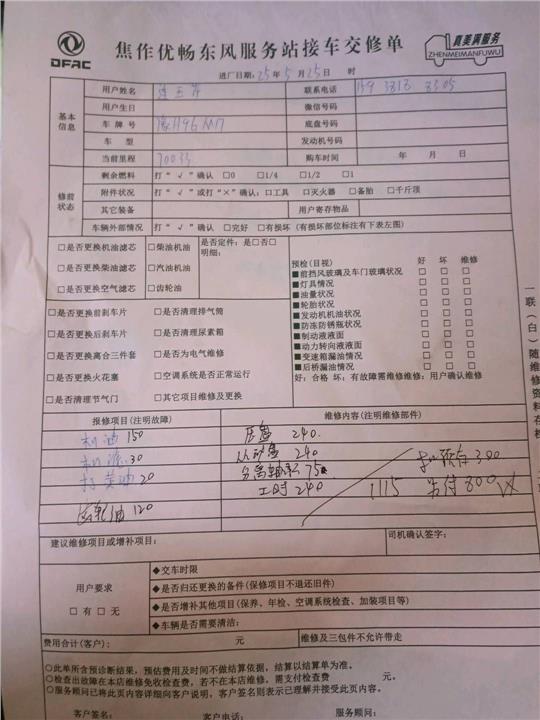 DFAC
焦作优畅东风服务站接车交修单
真美满服务
ZHENMEIMANFUWU
进厂日期: 25年 5月 25日 时
基本信息
用户姓名 联系电话
用户生日 微信号码
车牌号 豫H96 底盘号码
车型 发动机号码
当前里程 70033 购车时间 年 月 日
修前状态
剩余燃料 打“√”确认 □0 □1/4 □1/2 □1
附件状况 打“√”或打“×”确认:□工具 □灭火器 □备胎 □千斤顶
其它装备 用户寄存物品
车辆外部情况 打“√”确认 □完好 □有损坏(有损坏部位标注有下表左图)
□是否更换机油滤芯 □柴油机油 是否定件:是□否□
明细:
□是否更换柴油滤芯 □汽油机油
□是否更换空气滤芯 □齿轮油
□是否更换前刹车片 □是否清理排气筒
□是否更换后刹车片 □是否清理尿素箱
□是否更换离合三件套 □是否为电气维修
□是否更换火花塞 □空调系统是否正常运行
□是否清理节气门 □其它项目维修及更换
预检(目视) 好 坏 维修
■前挡风玻璃及车门玻璃状况 □ □ □
■灯具情况 □ □ □
■油量状况 □ □ □
■轮胎状况 □ □ □
■发动机机油状况 □ □ □
■防冻防锈瓶状况 □ □ □
■制动液液面 □ □ □
■动力转向液液面 □ □ □
■变速箱漏油情况 □ □ □
■后桥漏油情况 □ □ □
好:合格 坏:有故障需维修维修:用户确认维修
一联(白)随维修资料存档
报修项目(注明故障) 维修内容(注明维修部件)
机油 150 压盘 240
机滤 30 从动盘 240
打黄油 20 分离轴承 75
工时 240 1115
齿轮油 120
300
800
建议维修项目或增补项目: 司机确认签字:
用户要求
□有 □无
◆交车时限
◆是否归还更换的备件(保修项目不退还旧件)
◆是否增补其他项目(保养、年检、空调系统检查、加装项目等)
◆车辆是否需要清洁:
费用合计(客户): 元 维修及三包件不允许带走
○此单所含预诊断结果,预估费用及时间不做结算依据,结算以结算单为准。
○检查出故障在本店维修免收检查费,若不在本店维修,需支付检查费 元。
○服务顾问已将此页内容详细向客户说明,客户签名则表示已理解并接受此页内容。
客户签名: 客户电话: 服务顾问: